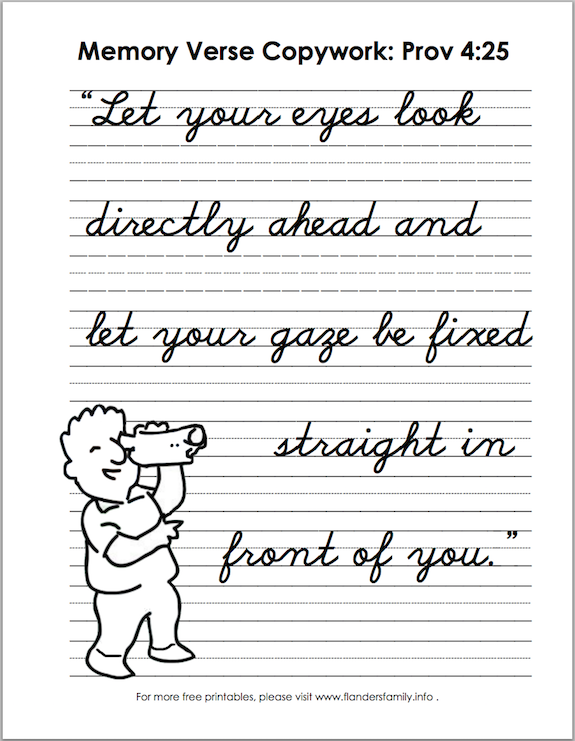 Memory Verse Copywork: Prov 4:25
“Let your eyes look
directly ahead and
let your gaze be fixed
straight in
front of you.”
For more free printables, please visit www.flandersfamily.info .